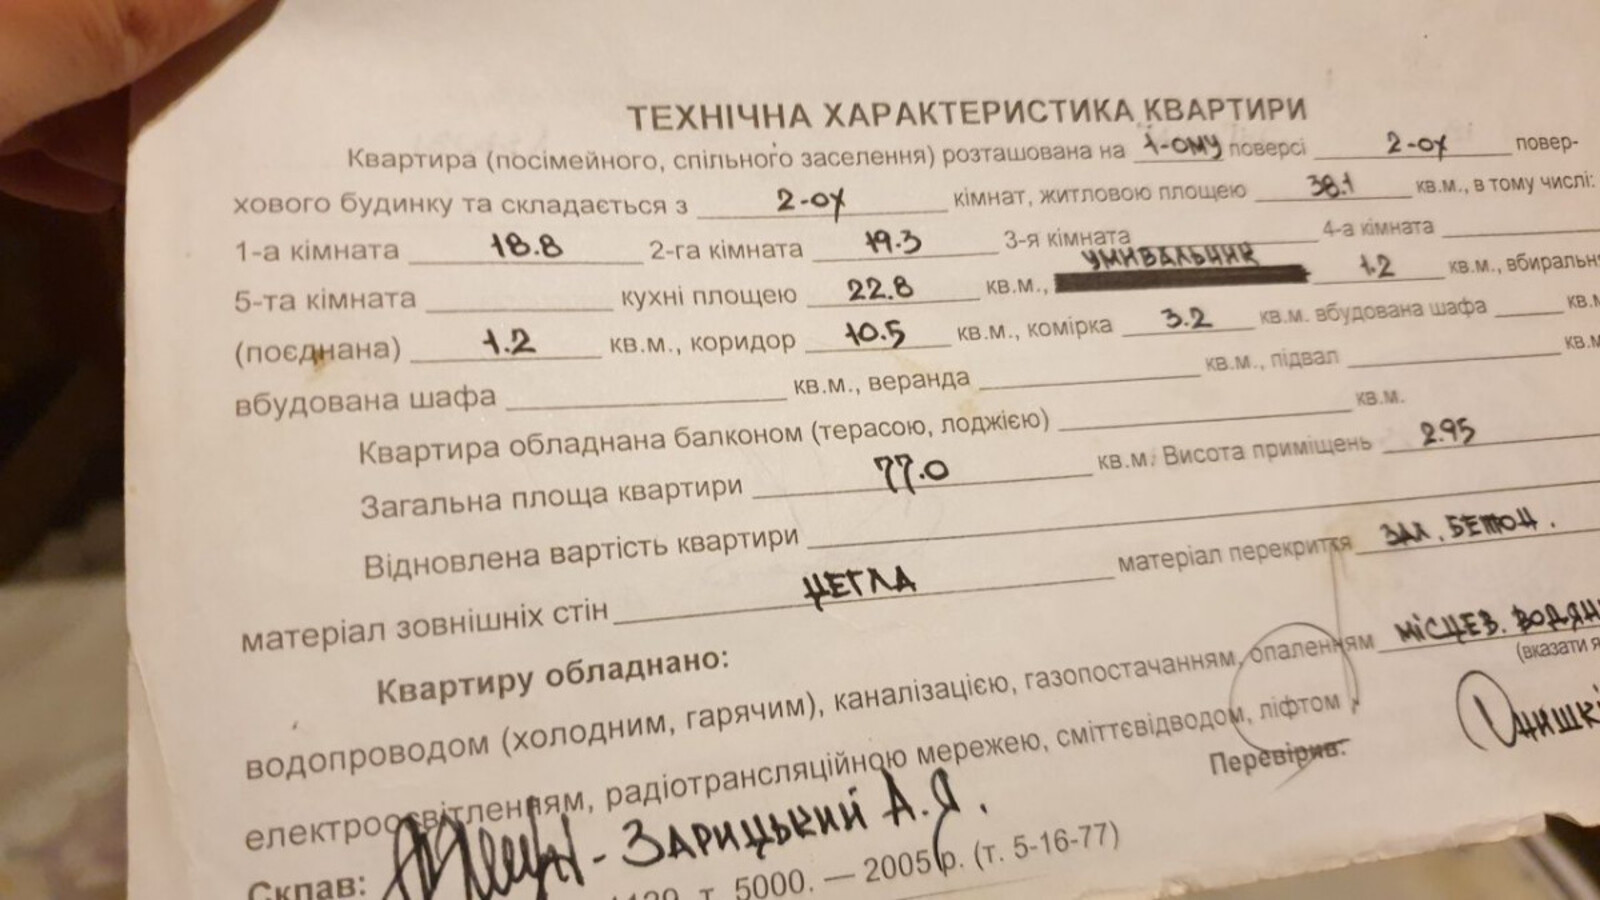 ТЕХНІЧНА ХАРАКТЕРИСТИКА КВАРТИРИ
Квартира (посімейного, спільного заселення) розташована на 1-ому поверсі 2-ох повер-
хового будинку та складається з 2-ох кімнат, житловою площею 38.1 кв.м., в тому числі:
1-а кімната 18.8 2-га кімната 19.3 3-я кімната 4-а кімната
5-та кімната кухні площею 22.8 кв.м., УМИВАЛЬНИК 1.2 кв.м., вбиральн
(поєднана) 1.2 кв.м., коридор 10.5 кв.м., комірка 3.2 кв.м. вбудована шафа кв.м
вбудована шафа кв.м., веранда кв.м., підвал кв.м
Квартира обладнана балконом (терасою, лоджією) кв.м.
Загальна площа квартири 77.0 кв.м. Висота приміщень 2.95
Відновлена вартість квартири
матеріал зовнішніх стін ЦЕГЛА матеріал перекриття ЗАЛ. БЕТОН.
Квартиру обладнано:
водопроводом (холодним, гарячим), каналізацією, газопостачанням, опаленням МІСЦЕВ. ВОДЯН
(вказати я
електроосвітленням, радіотрансляційною мережею, сміттєвідводом, ліфтом
Перевірив:
Склав: - ЗАРИЦЬКИЙ А.Я.
т. 5000. — 2005 р. (т. 5-16-77)